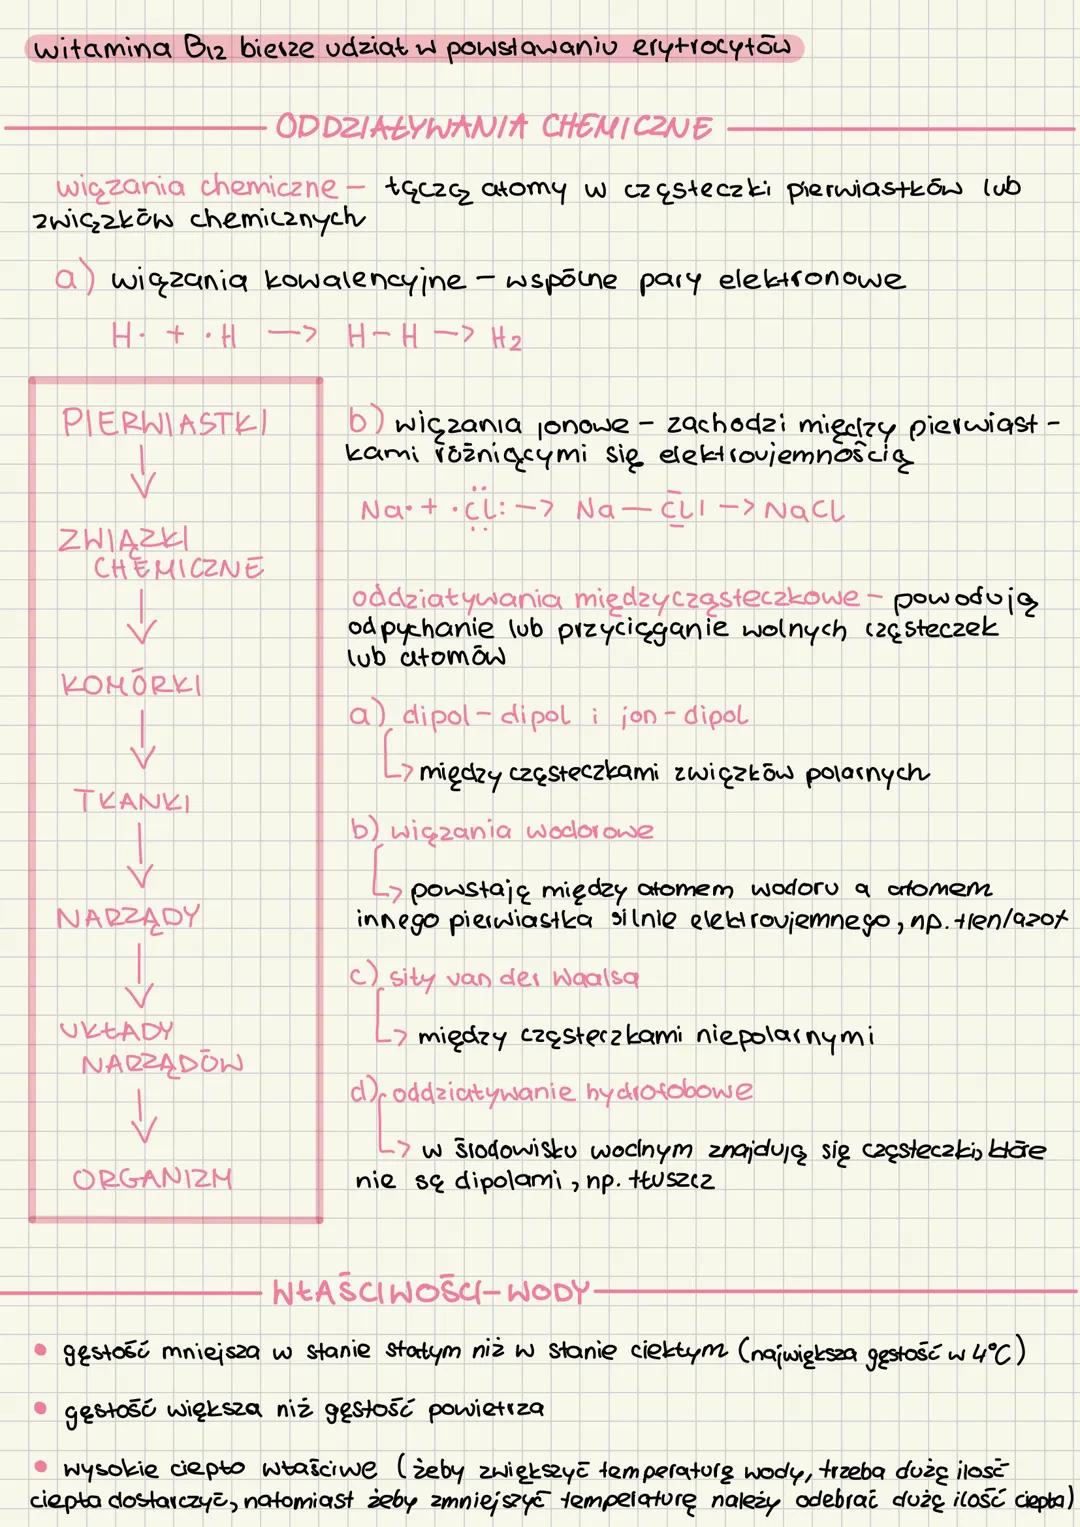 witamina B12 bierze udział w powstawaniu erytrocytów
ODDZIAŁYWANIA CHEMICZNE
wiązania chemiczne – łączą atomy w cząsteczki pierwiastków lub
związków chemicznych
a) wiązania kowalencyjne – wspólne pary elektronowe
H· + ·H –> H–H –> H2
PIERWIASTKI
ZWIĄZKI
CHEMICZNE
KOMÓRKI
TKANKI
NARZĄDY
UKŁADY
NARZĄDÓW
ORGANIZM
b) wiązania jonowe – zachodzi między pierwiast-
kami różniącymi się elektroujemnością
Na· + ·Cl: –> Na – Cl| –> NaCl
oddziaływania międzycząsteczkowe – powodują
odpychanie lub przyciąganie wolnych cząsteczek
lub atomów
a) dipol–dipol i jon–dipol
między cząsteczkami związków polarnych
b) wiązania wodorowe
powstają między atomem wodoru a atomem
innego pierwiastka silnie elektroujemnego, np. tlen/azot
c) siły van der Waalsa
między cząsteczkami niepolarnymi
d) oddziaływanie hydrofobowe
w środowisku wodnym znajdują się cząsteczki, które
nie są dipolami, np. tłuszcz
WŁAŚCIWOŚCI WODY
• gęstość mniejsza w stanie stałym niż w stanie ciekłym (największa gęstość w 4°C)
• gęstość większa niż gęstość powietrza
• wysokie ciepło właściwe (żeby zwiększyć temperaturę wody, trzeba dużą ilość
ciepła dostarczyć, natomiast żeby zmniejszyć temperaturę należy odebrać dużą ilość ciepła)